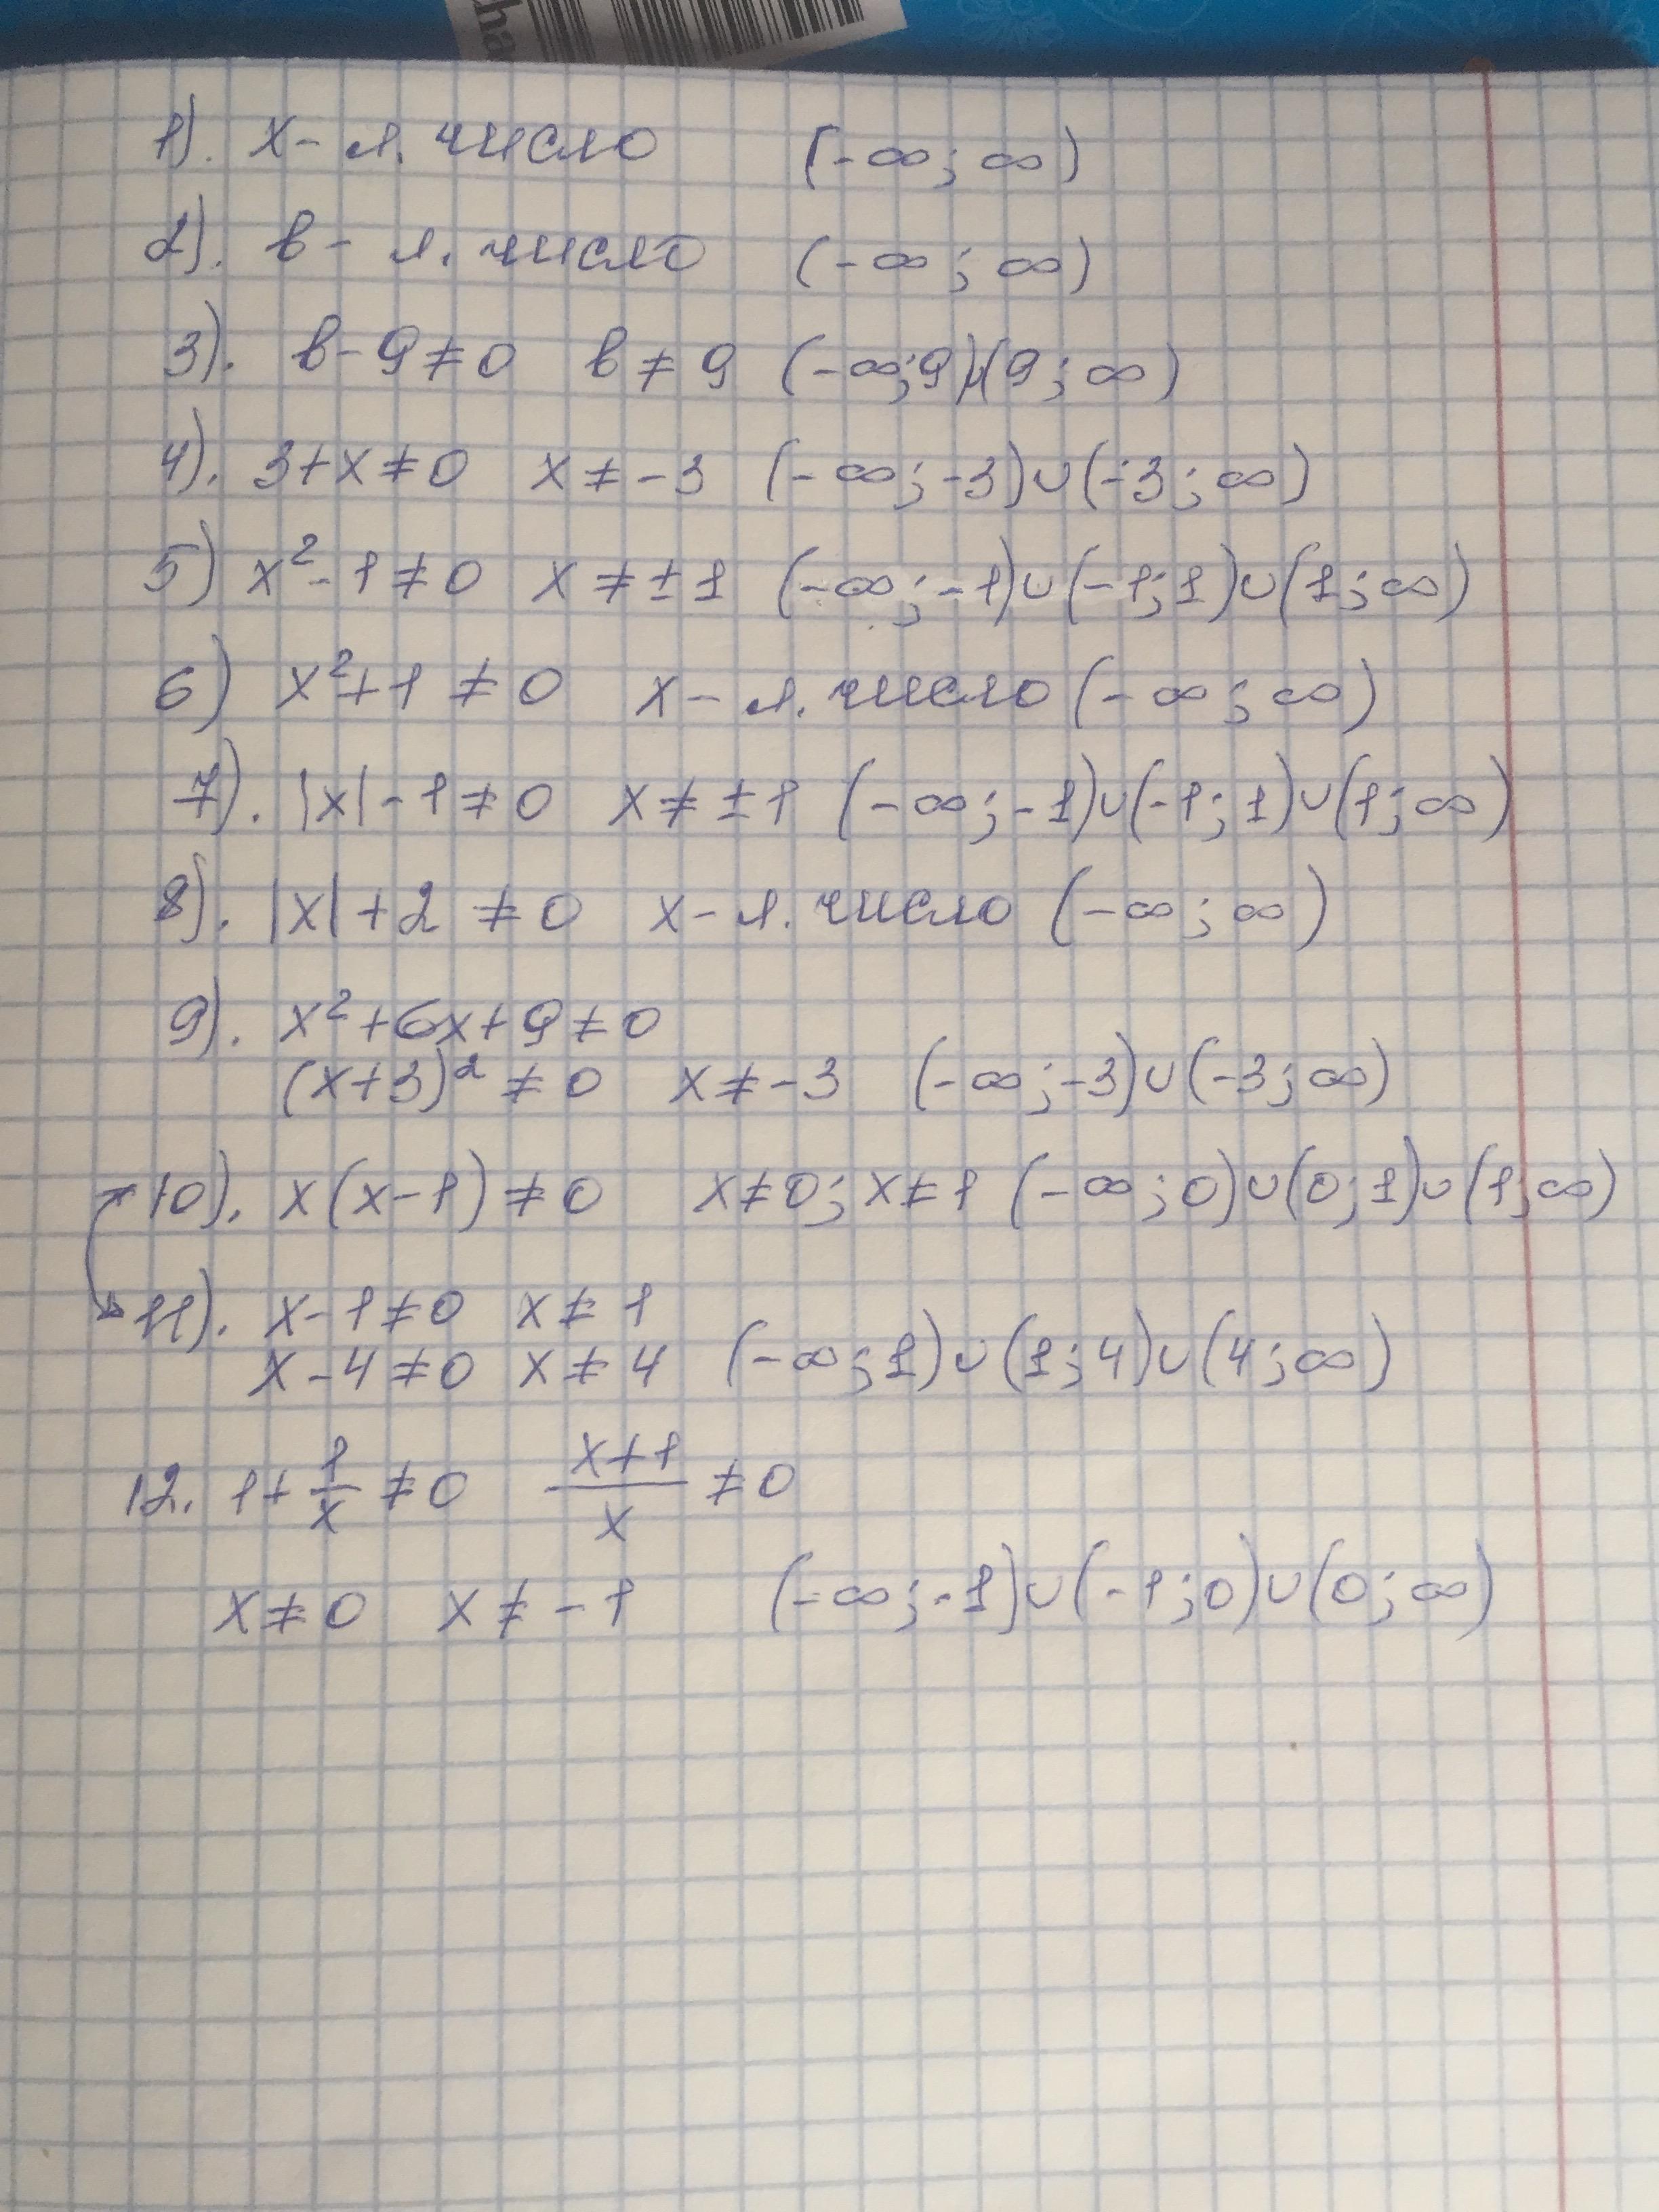 cha
1). x - л. число (-∞; ∞)
2). в - л. число (-∞; ∞)
3). в - 9 ≠ 0 в ≠ 9 (-∞; 9)∪(9; ∞)
4). 3 + x ≠ 0 x ≠ -3 (-∞; -3)∪(-3; ∞)
5) x² - 1 ≠ 0 x ≠ ±1 (-∞; -1)∪(-1; 1)∪(1; ∞)
6) x² + 1 ≠ 0 x - л. число (-∞; ∞)
7). |x| - 1 ≠ 0 x ≠ ±1 (-∞; -1)∪(-1; 1)∪(1; ∞)
8). |x| + 2 ≠ 0 x - л. число (-∞; ∞)
9). x² + 6x + 9 ≠ 0
(x + 3)² ≠ 0 x ≠ -3 (-∞; -3)∪(-3; ∞)
10). x(x - 1) ≠ 0 x ≠ 0; x ≠ 1 (-∞; 0)∪(0; 1)∪(1; ∞)
11). x - 1 ≠ 0 x ≠ 1
x - 4 ≠ 0 x ≠ 4 (-∞; 1)∪(1; 4)∪(4; ∞)
12. 1 + 1/x ≠ 0 (x+1)/x ≠ 0
x ≠ 0 x ≠ -1 (-∞; -1)∪(-1; 0)∪(0; ∞)